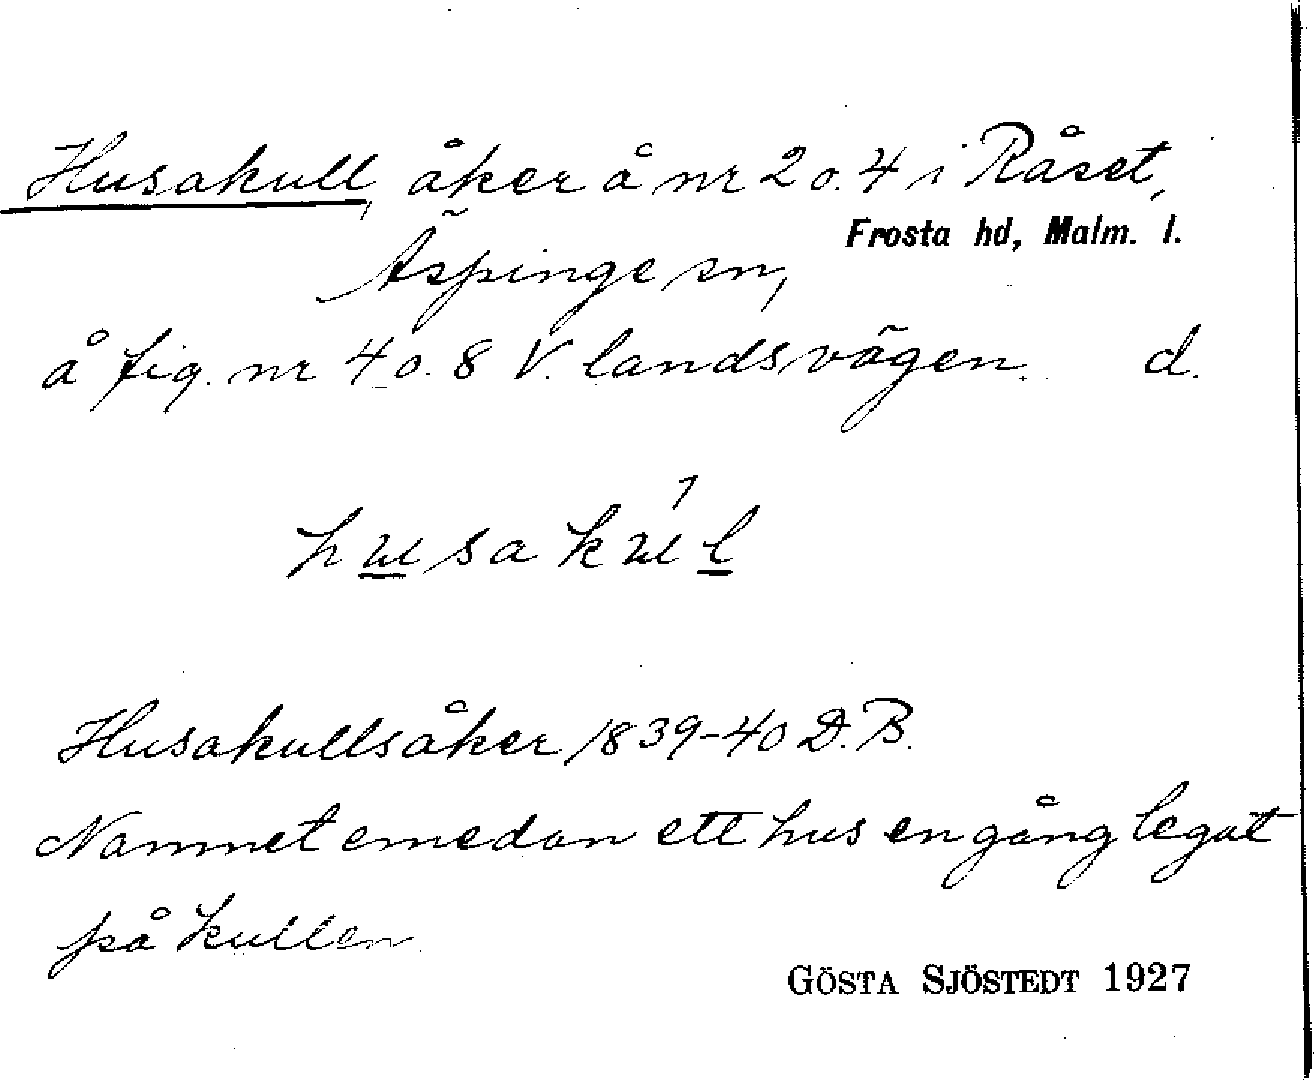 Husakull, åker å nr 2 o. 4 i Råset,
Frosta hd, Malm. l.
Äspinge sn,
å fig. nr 4 o. 8 V. landsvägen. d.
husakul
Husakullsåker 1839-40 D. B.
Namnet emedan ett hus en gång legat
på kullen.
GÖSTA SJÖSTEDT 1927